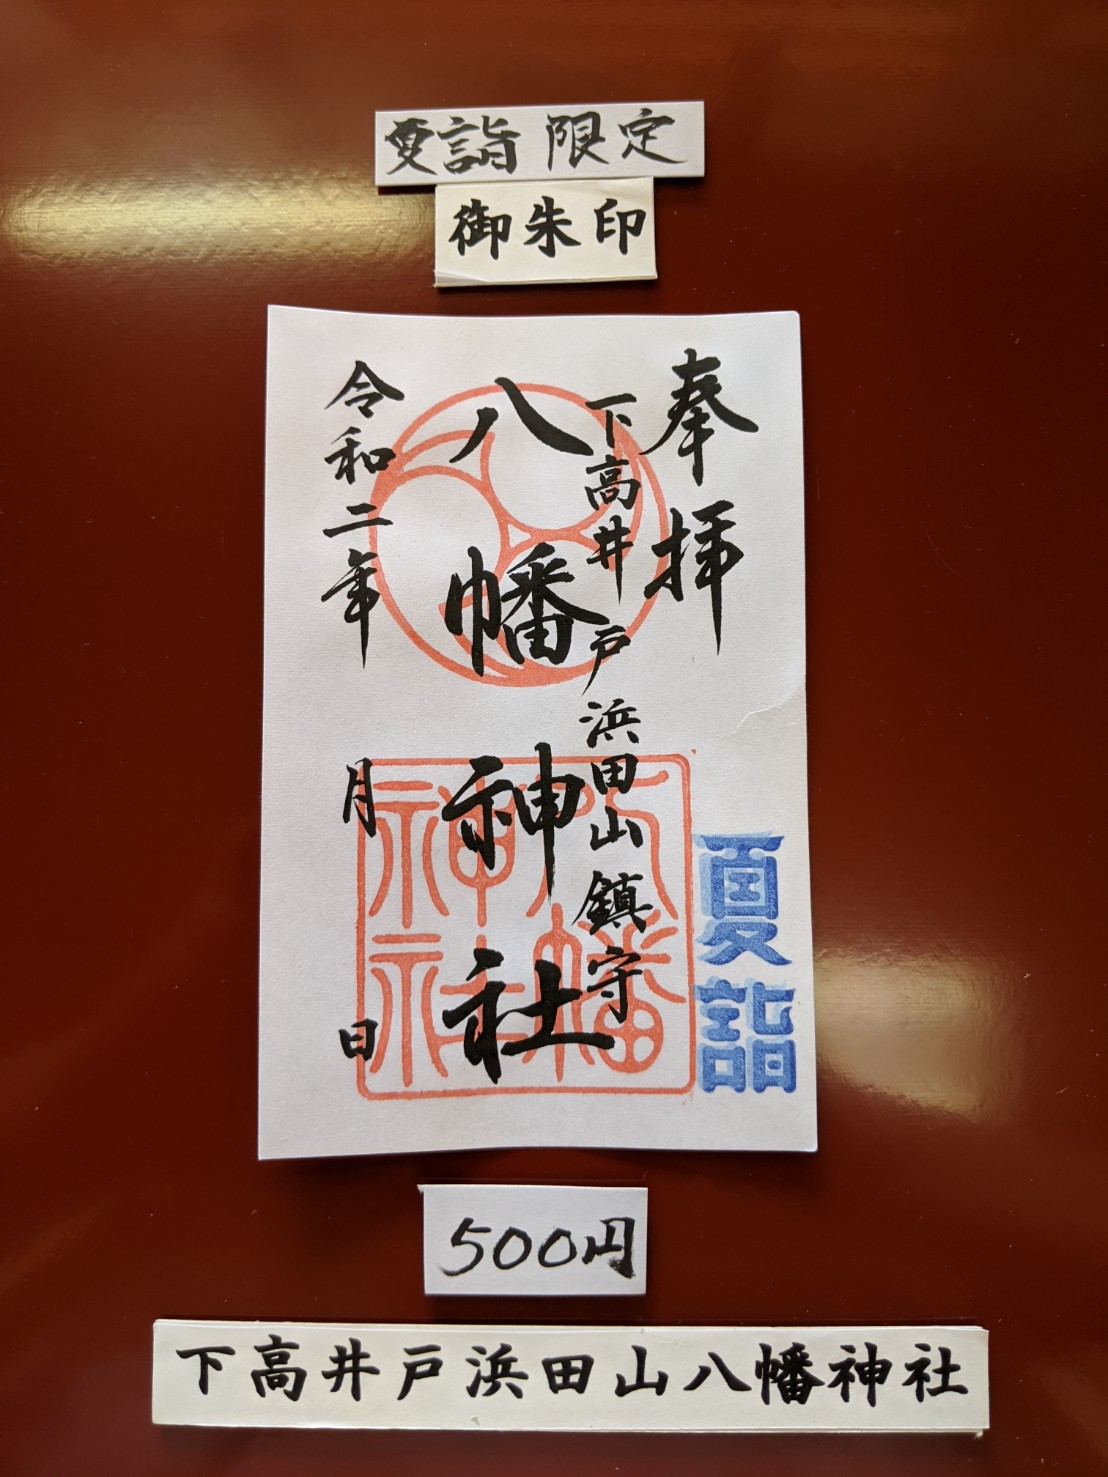 夏詣 限定
御朱印
奉拝
下高井戸浜田山鎮守
八幡神社
令和二年 月 日
八幡神社
夏詣
500円
下高井戸浜田山八幡神社